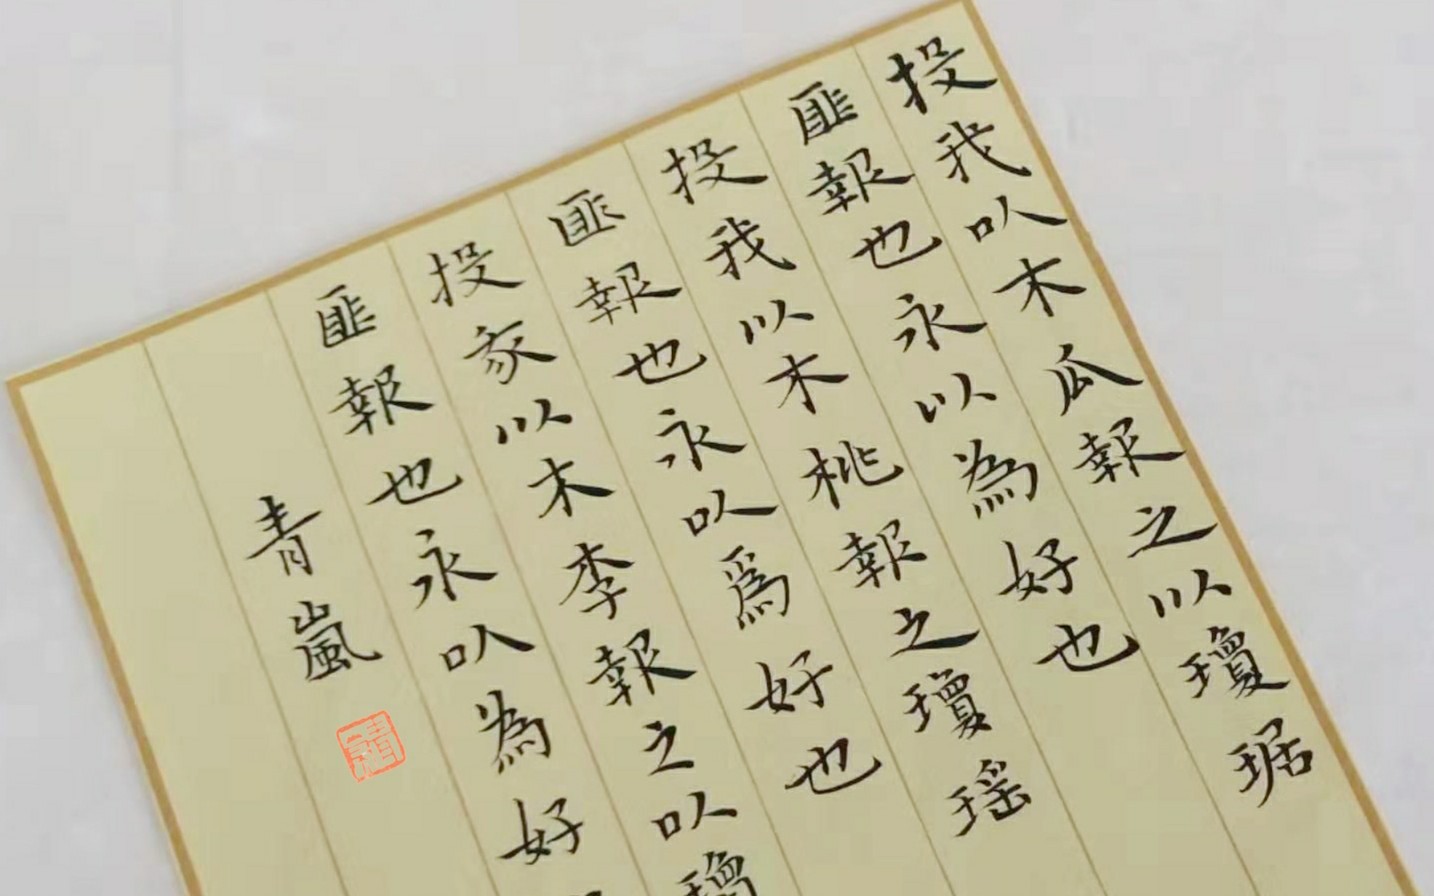 投我以木瓜報之以瓊琚
匪報也永以為好也
投我以木桃報之瓊瑶
匪報也永以爲好也
投我以木李報之以瓊
匪報也永以為好
青嵐